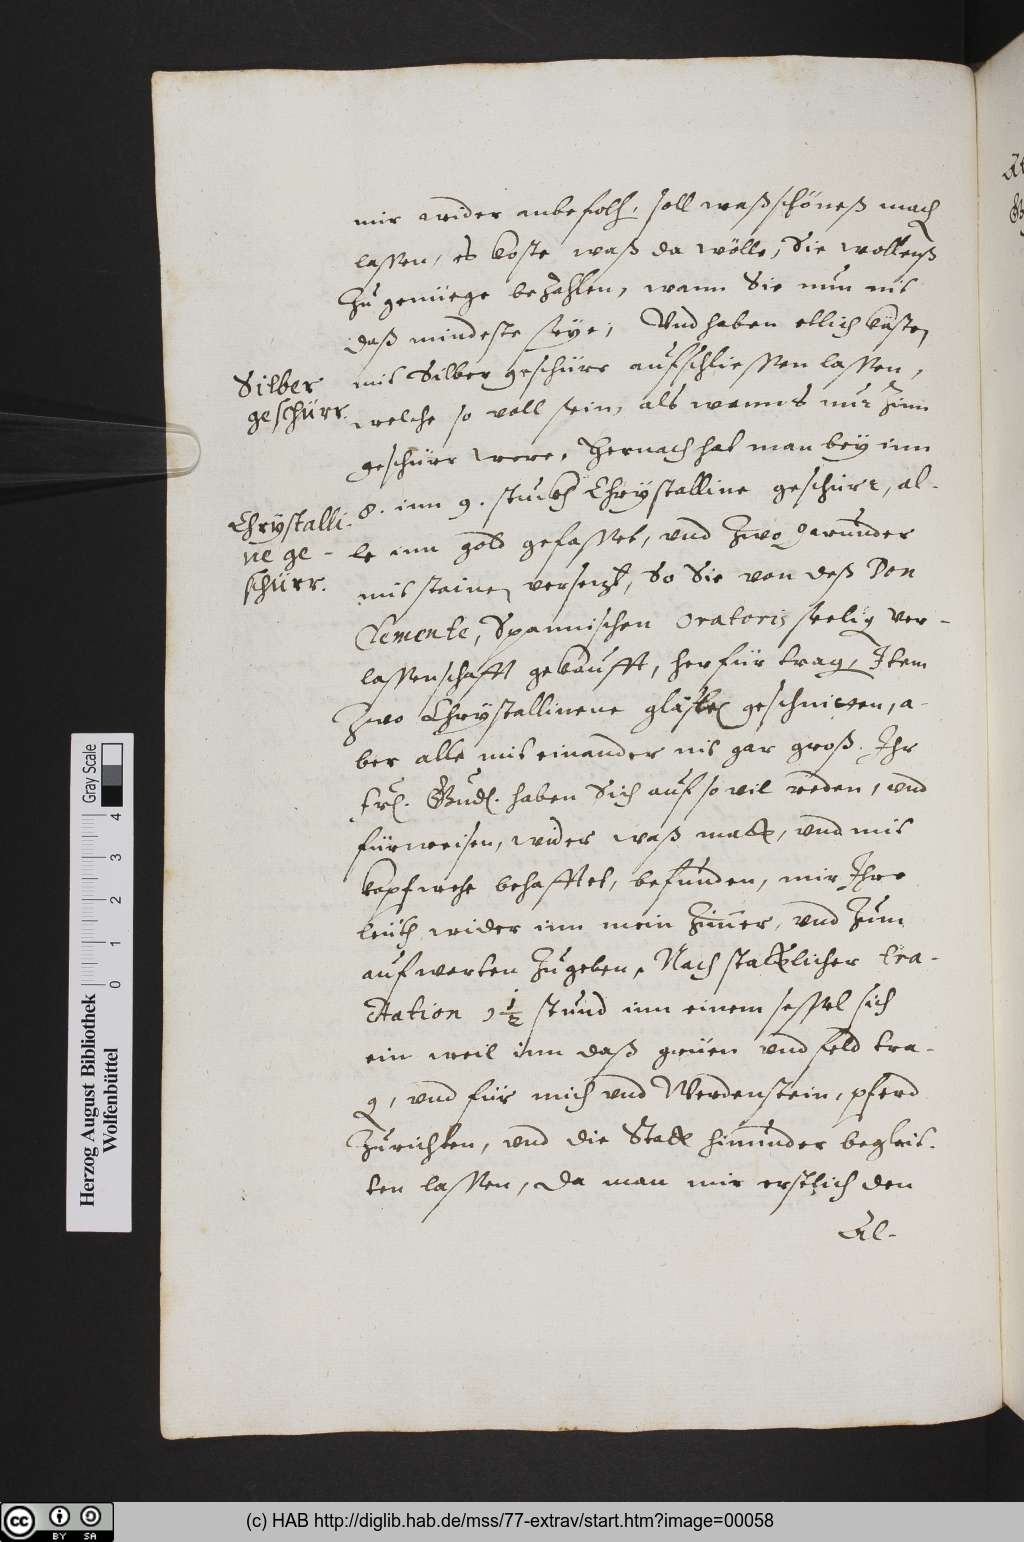 mir wider anbefolh, soll waß schöneß mach
lassen, es koste waß da wölle, Sie wollenß
zu genüege bezahlen, wann Sie nun nit
daß mindeste seye, Und haben etlich käste
Silber
geschürr.
mit Silber geschürr aufschliessen lassen,
welche so voll sein, als wanns nur Zinn
geschürr were. Hernach hat man bey inn
Chrystalli-
ne ge-
schürr.
8. inn 9. stuckh Chrystalline geschürr, al-
le inn gold gefasset, und zwo
mit stainen versezt, So Sie von deß Don
Clemente, Spannischen Oratoris seelig ver-
lassenschafft gekaufft, herfür trag, Item
zwo Chrystallinene gläser geschnitten, a-
ber alle mit einander nit gar groß. Ihr
frl. Gnd. haben Sich auf so vil reden, und
fürweisen, wider waß matt, und mit
kopfwehe behafftet, befunden, mir Ihre
leüth wider inn mein Zimmer, und zum
aufwarten zugeben, Nach stattlicher tra-
ctation 1 1/2 stund inn einem sessel sich
ein weil inn daß grüen und feld tra-
g, und für mich und Werdenstein, pferd
zurichten, und die Statt hinunder begleit-
ten lassen, da man mir erstlich den
Al-
Herzog August Bibliothek
Wolfenbüttel
0 1 2 3 4
Gray Scale
(c) HAB http://diglib.hab.de/mss/77-extrav/start.htm?image=00058
cc BY SA